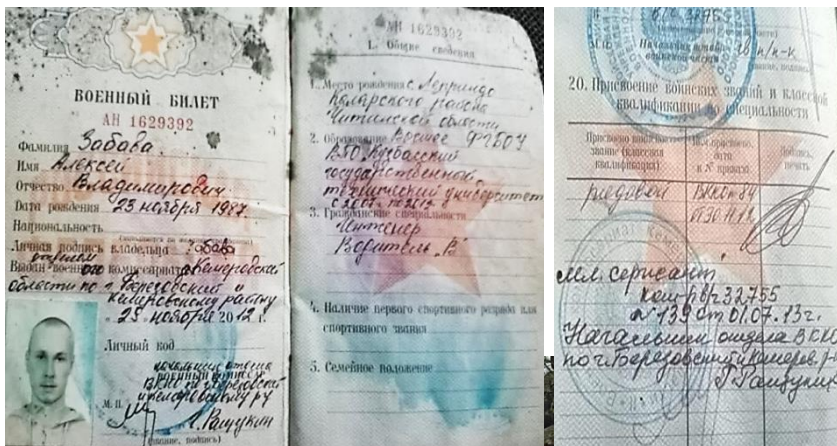 ВОЕННЫЙ БИЛЕТ
АН 1629392
Фамилия Забава
Имя Алексей
Отчество Владимирович
Дата рождения 23 ноября 1987
Национальность
Личная подпись владельца Забава
Выдан отделом военного комиссариата Кемеровской
области по г. Березовский и
Кемеровскому району
"28" ноября 2012 г.
Личный код
начальник отдела
ВККО по г. Березовский
и Кемеровскому р-у
М. П.
Г. Ращукин
(звание, подпись)
АН 1629392
1. Общие сведения
1. Место рождения с. Леприндо
Каларского района
Читинской области
2. Образование Высшее ФГБОУ
ВПО Кузбасский
государственный
технический университет
3. Гражданские специальности
Инженер
Водитель "В"
4. Наличие первого спортивного разряда или
спортивного звания
5. Семейное положение
М. П. Начальник штаба
воинской части п/п-к
20. Присвоение воинских званий и классной
квалификации по специальности
Присвоено воинское
звание (классная
квалификация)
Кем присвоено,
дата
и № приказа
Подпись,
печать
рядовой
мл. сержант
ком. в/ч 32755
№ 139 от 01.07.13г.
Начальник отдела ВККО
по г. Березовский и Кемеров. р-
Г. Ращукин